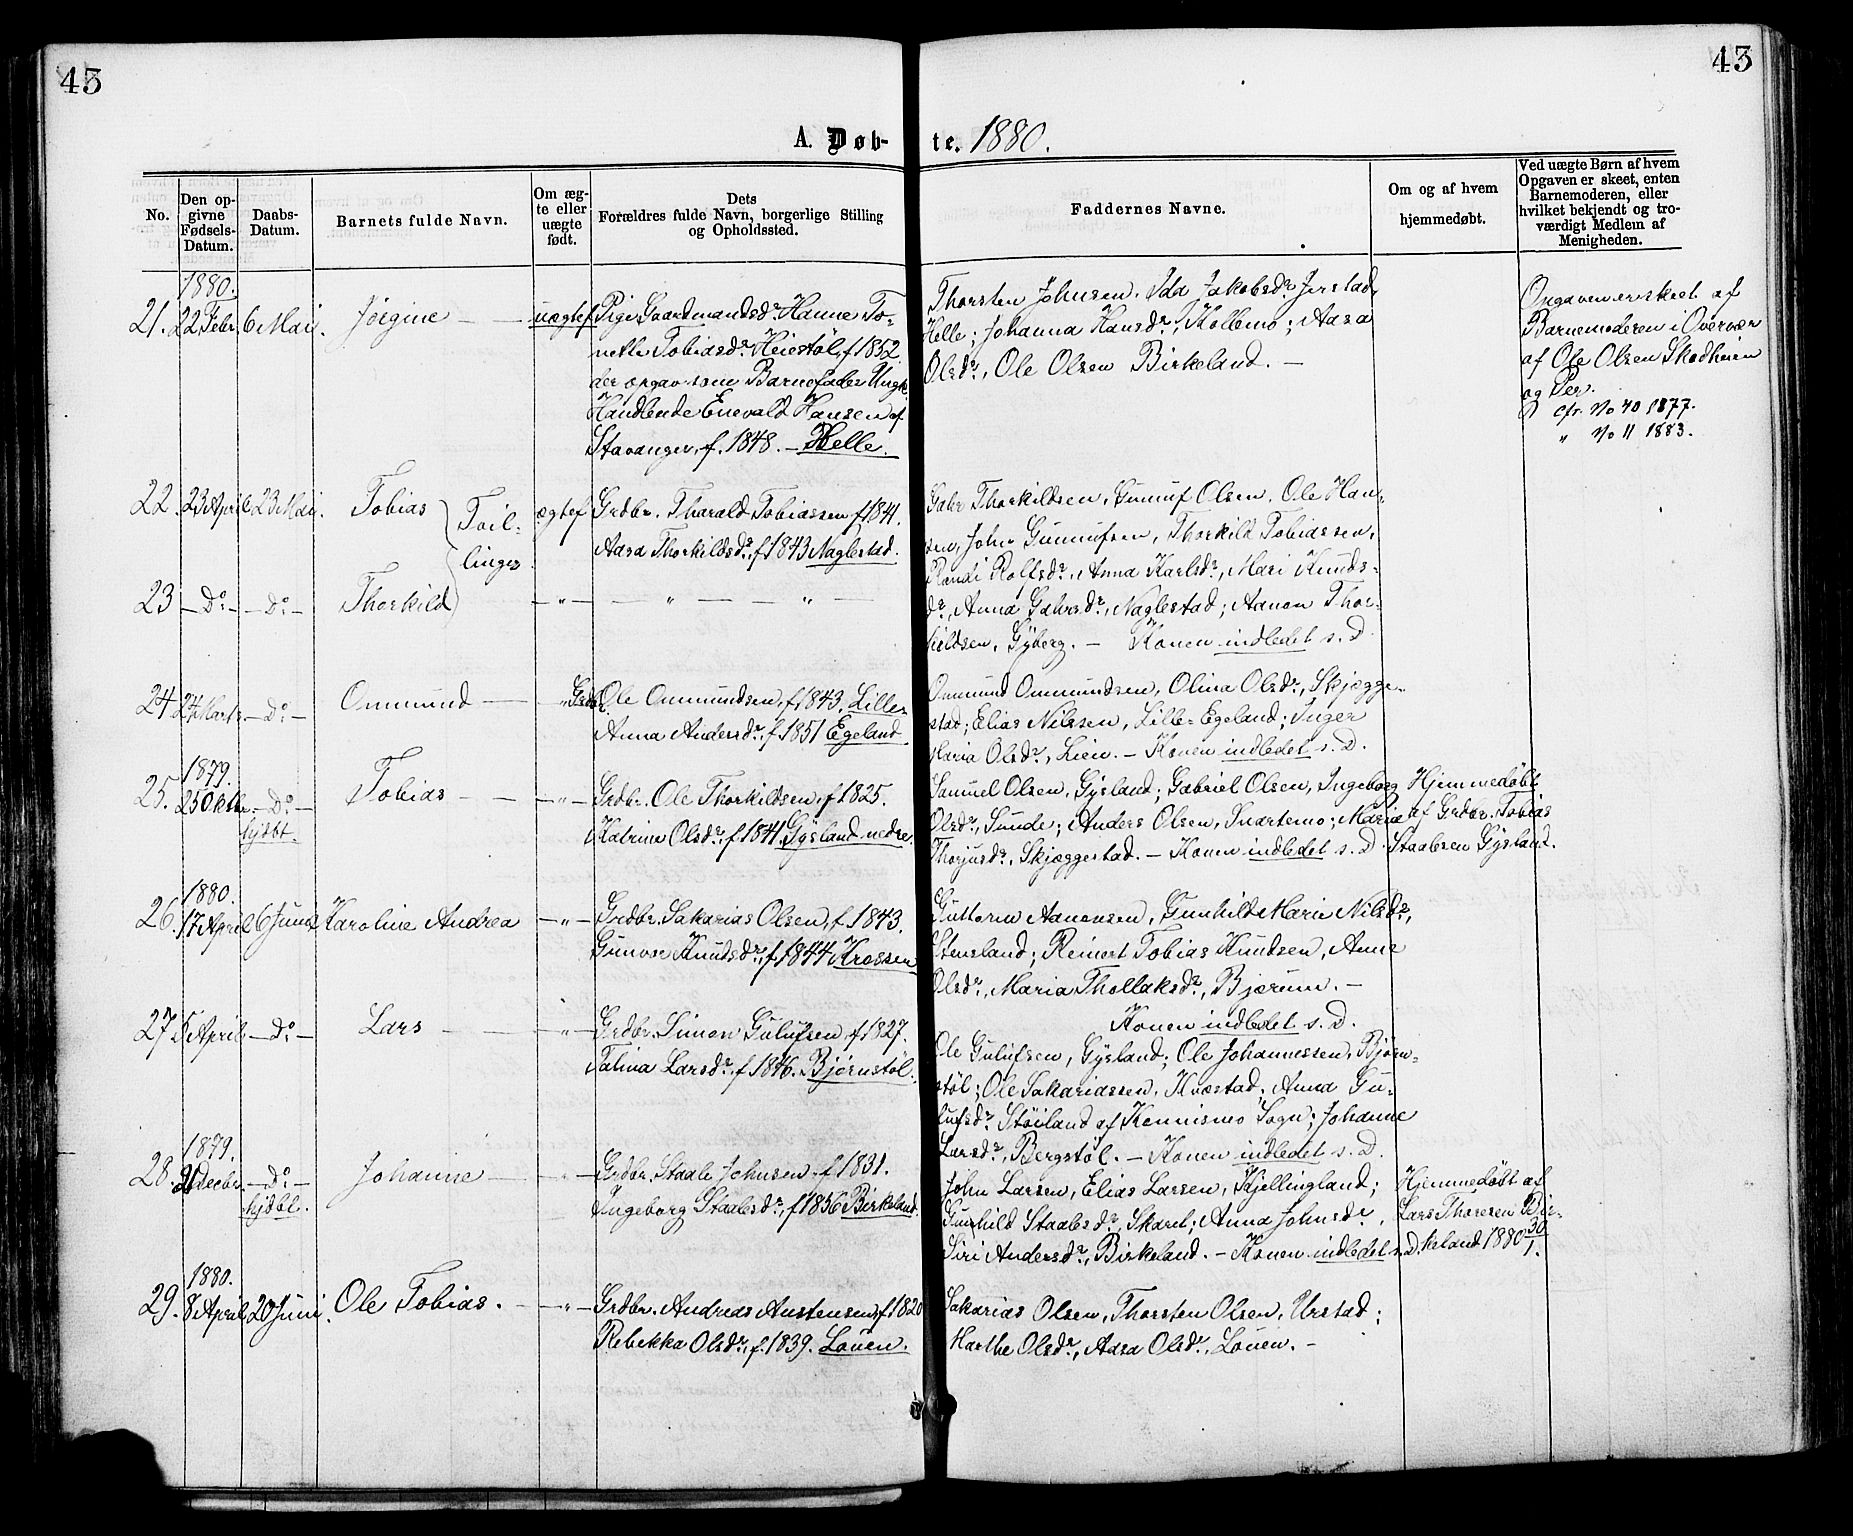 43
43
A. Døb-
te. 1880.
No.
Den op-
givne
Fødsels-
Datum.
Daabs-
Datum.
Barnets fulde Navn.
Om æg-
te eller
uægte
født.
Dets
Forældres fulde Navn, borgerlige Stilling
og Opholdssted.
Faddernes Navne.
Om og af hvem
hjemmedøbt.
Ved uægte Børn af hvem
Opgaven er skeet, enten
Barnemoderen, eller
hvilket bekjendt og tro-
værdigt Medlem af
Menigheden.
1880.
21. 22 Febr. 6 Mai. Jørgine — uægtef.
Pige Gaardmandsd. Hanne To-
nette Tobiasdr. Heiestøl, f. 1852.
der opgav som Barnefader Ungk.
Handlende Enevald Hansen af
Stavanger, f. 1848. — Helle.
Thorsten Johnsen, Ida Jakobsdr. Jerstad,
Helle; Johanna Hansdr., Kollemo; Aasa
Olsdr., Ole Olsen Birkeland. —
Opgaven er skeet af
Barnemoderen i Overvær
af Ole Olsen Skodheien
og Per.
cfr. No 40 1877.
" No 11 1883.
22. 23 April 23 Mai. Tobias } Tvil-
linger. ægtef
Grdbr. Tharald Tobiassen f. 1841.
Aasa Thorkildsdr., f. 1843 Naglestad.
23 — Do — — Do — Thorkild — " — — " — — " —
Gabr. Thorkildsen, Gunuf Olsen, Ole Han-
sen, John Gunnufsen, Thorkild Tobiassen,
Randi Rolfsdr., Anna Karlsdr., Mari Knuds-
dr., Anna Gabrsdr., Naglestad; Aanon Thor-
kildsen, Gyberg. — Konen indledet s. D.
24 24 Marts — Do — Ommund — "
Grdbr. Ole Ommundsen, f. 1843, Lille-
Anna Andersdr., f. 1851 Egeland.
Ommund Ommundsen, Olina Olsdr., Skjægge-
stad; Elias Nilssen, Lille-Egeland; Inger
Maria Olsdr., Lien. — Konen indledet s. D.
1879.
25. 25 Oktbr. — Do —
hjdbt.
Tobias — — " —
Grdbr. Ole Thorkildsen, f. 1825.
Katrine Olsdr., f. 1841. Gysland nedre.
Samuel Olsen, Gysland; Gabriel Olsen, Ingeborg
Olsdr., Sunde; Anders Olsen, Snartemo; Maria
Thorjusdr., Skjæggestad. — Konen indledet s. D.
Hjemmedøbt
af Grdbr. Tobias
Staalesen Gysland.
1880.
26. 17 April 6 Juni Karoline Andrea — " —
Grdbr. Sakarias Olsen, f. 1843.
Gunvor Knudsdr., f. 1844 Krossen
Guttorm Aanensen, Gunhild Marie Nilsdr.,
Stensland; Reinert Tobias Knudsen, Anne
Olsdr., Maria Thollaksdr., Bjærum. —
Konen indledet s. D.
27 5 April — Do — Lars — — " —
Grdbr. Simon Gulufsen, f. 1827.
Talina Larsdr., f. 1846. Bjørnstøl.
Ole Gulufsen, Gysland; Ole Johannessen, Bjørn-
støl; Ole Sakariassen, Kvæstad; Anna Gu-
lufsdr. Støiland af Konnismo Sogn; Johanne
Larsdr., Bergstøl. — Konen indledet s. D.
1879.
28. Decbr. — Do —
hjdbt.
Johanne — — " —
Grdbr. Staale Johnsen, f. 1831.
Ingeborg Staalesdr., f. 1836 Birkeland.
John Larsen, Elias Larsen, Kjellingland;
Gunhild Staalesdr., Skaret; Anna Johnsdr.,
Siri Andersdr., Birkeland. — Konen indledet s. D.
Hjemmedøbt af
Lars Thoresen Bir-
keland 1880 30/1.
1880.
29. 8 April 20 Juni. Ole Tobias. — — " —
Grdbr. Andreas Austensen, f. 1820
Rebekka Olsdr., f. 1839. Løuen.
Sakarias Olsen, Thorsten Olsen, Urstad;
Marthe Olsdr., Aasa Olsdr., Løuen. —